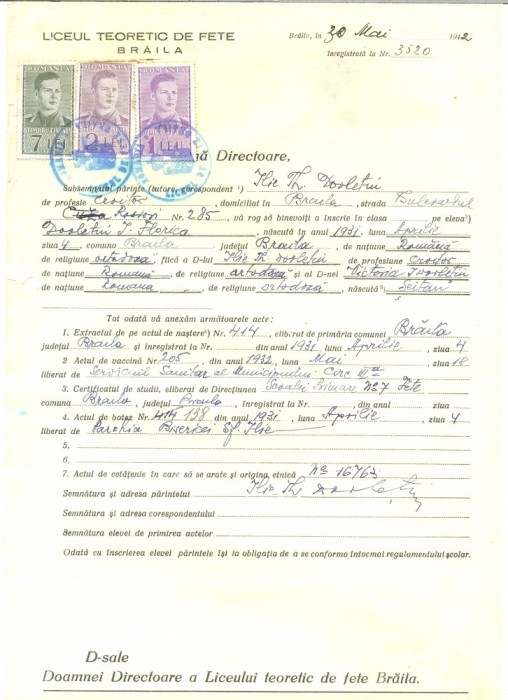 LICEUL TEORETIC DE FETE
BRĂILA
Brăila, în 30 Mai 1942
înregistrată la Nr. 3520
ROMANIA ROMANIA ROMANIA
TIMBRU FISCAL
7 LEI 2 LEI 1 LEI
Directoare,
Subsemnatul părinte (tutore, corespondent ¹) Ilie Th. Dorletin
de profesie Croitor, domiciliat în Braila, strada Bulevardul
Cuza Nr. 285, vă rog să binevoiți a înscrie în clasa pe eleva³)
Dorletin I. Florica născută în anul 1931, luna Aprilie
ziua 4 comuna Braila județul Braila, de națiune Română
de religiune ortodoxă fiică a D-lui Ilie Th. Dorletin de profesiune croitor
de națiune Romană, de religiune ortodoxă și al D-nei Victoria Dorletin
de națiune Romana, de religiune ortodoxă, născută Seitan
Tot odată vă anexăm următoarele acte:
1. Extractul de pe actul de naștere²) Nr. 414, eliberat de primăria comunei Brăila
județul Braila și înregistrat la Nr. din anul 1931 luna Aprilie, ziua 4
2. Actul de vaccină Nr. 205, din anul 1932, luna Mai ziua 18
liberat de Serviciul Sanitar al Municipiului Circ III a
3. Certificatul de studii, eliberat de Direcțiunea Scoalei Primare No 7 Fete
comuna Braila, județul Braila, înregistrat la Nr. din anul
4. Actul de botez Nr. 414 138 din anul 1931, luna Aprilie, ziua 4
liberat de Parohia Bisericei Sf. Ilie
5.
6.
7. Actul de cetățenie în care să se arate și origina etnică No 16763
Semnătura și adresa părintelui Ilie Th. Dorletin
Semnătura și adresa corespondentului
Semnătura elevei de primirea actelor
Odată cu înscrierea elevei părintele își ia obligația de a se conforma întocmai regulamentului școlar.
D-sale
Doamnei Directoare a Liceului teoretic de fete Brăila.